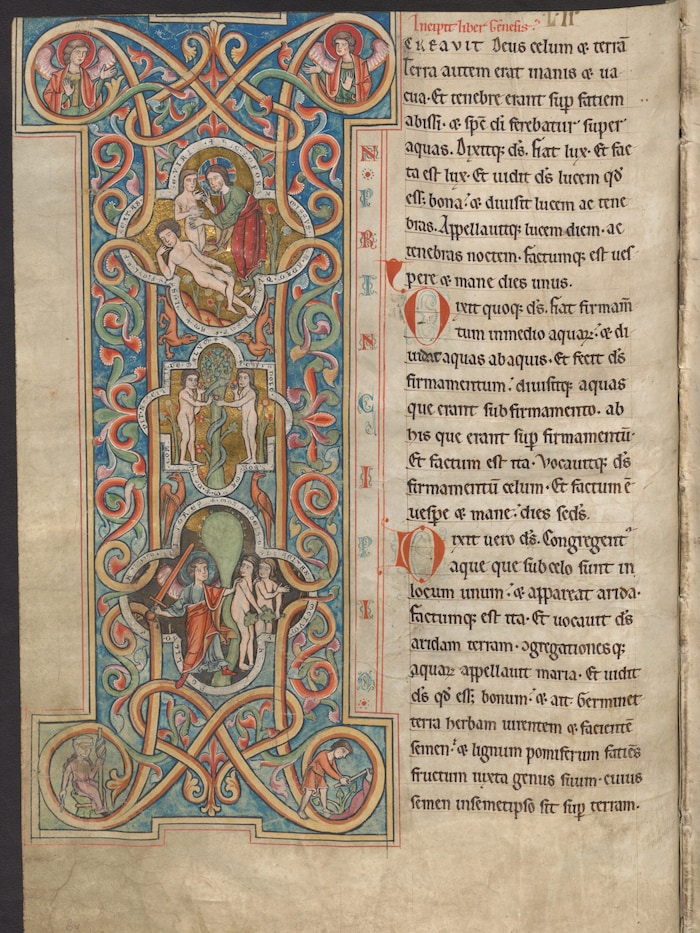 Incipit liber Genesis
N
P
R
I
N
C
I
P
I
O
CREAVIT Deus celum & terrā
Terra autem erat inanis & ua
cua. Et tenebre erant sup faciem
abissi. & spc di ferebatur super
aquas. Dixitq; ds. Fiat lux. Et fac
ta est lux. Et uidit ds lucem qd
ess; bona. & diuisit lucem ac tene
bras. Appellauitq; lucem diem. ac
tenebras noctem. factumq; est ues
pere & mane dies unus.
Dixit quoq; ds. fiat firmam
tum inmedio aquar. & di
uidat aquas abaquis. Et fecit ds
firmamentum. diuisitq; aquas
que erant subfirmamento. ab
his que erant sup firmamentū.
Et factum est ita. Vocauitq; ds
firmamentū celum. Et factum ē
uespe & mane. dies scds.
Dixit uero ds. Congregent
aque que subcelo sunt in
locum unum. & appareat arida.
factumq; est ita. Et uocauit ds
aridam terram. agregationesq;
aquar appellauit maria. Et uidit
ds qd ess; bonum. & ait. Germinet
terra herbam uirentem & facientē
semen. & lignum pomiferum faciēs
fructum iuxta genus suum. cuius
semen insemetipso sit sup terram.